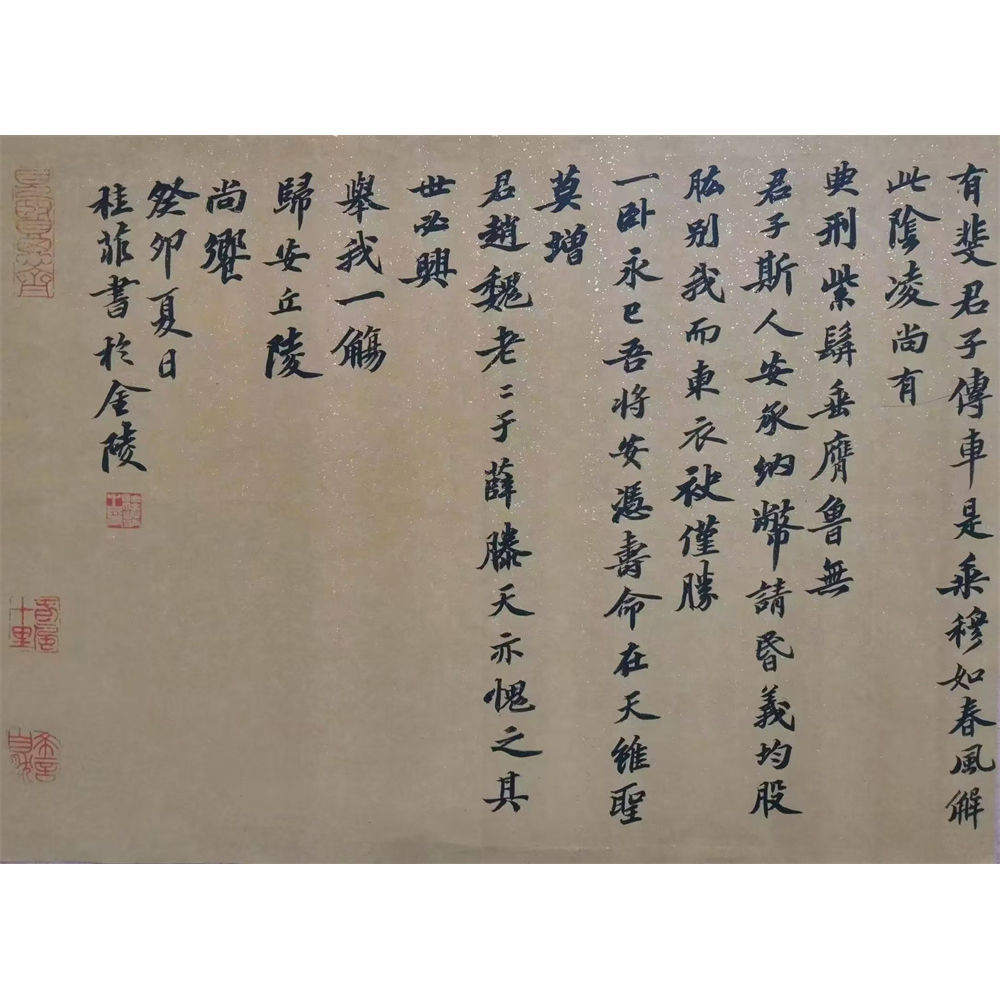 有斐君子傳車是乘穆如春風解
此陰凌尚有
典刑紫髯垂膺魯無
君子斯人安承納幣請昏義均股
肱別我而東衣袂僅勝
一卧永已吾將安憑壽命在天雖聖
莫增
君趙魏老老于薛滕天亦愧之其
世必興
舉我一觴
歸安丘陵
尚饗
癸卯夏日
桂菲書於金陵
十里